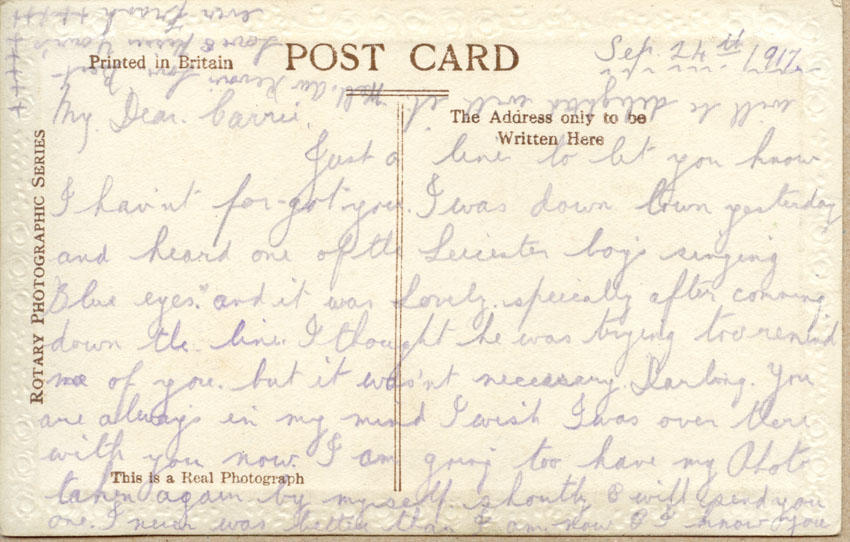 Printed in Britain
POST CARD
Sep. 24th 1917
The Address only to be
Written Here
ROTARY PHOTOGRAPHIC SERIES
This is a Real Photograph
My Dear. Carrie,
Just a line to let you know
I hav'nt for-got you. I was down town yesterday
and heard one of the Leicester boys singing
Blue eyes." and it was Lovely. specially after comming
down the line. I thought he was trying too remind
me of you. but it was'nt necessary. Darling. You
are always in my mind I wish I was over there
with you now. I am going too have my Photo
taken again by myself. shortly & will send you
one. I never was better than I am now & I know you
will be delighted with it. Well. Au Revoir.
Love &
ever Frank ++++
+++++